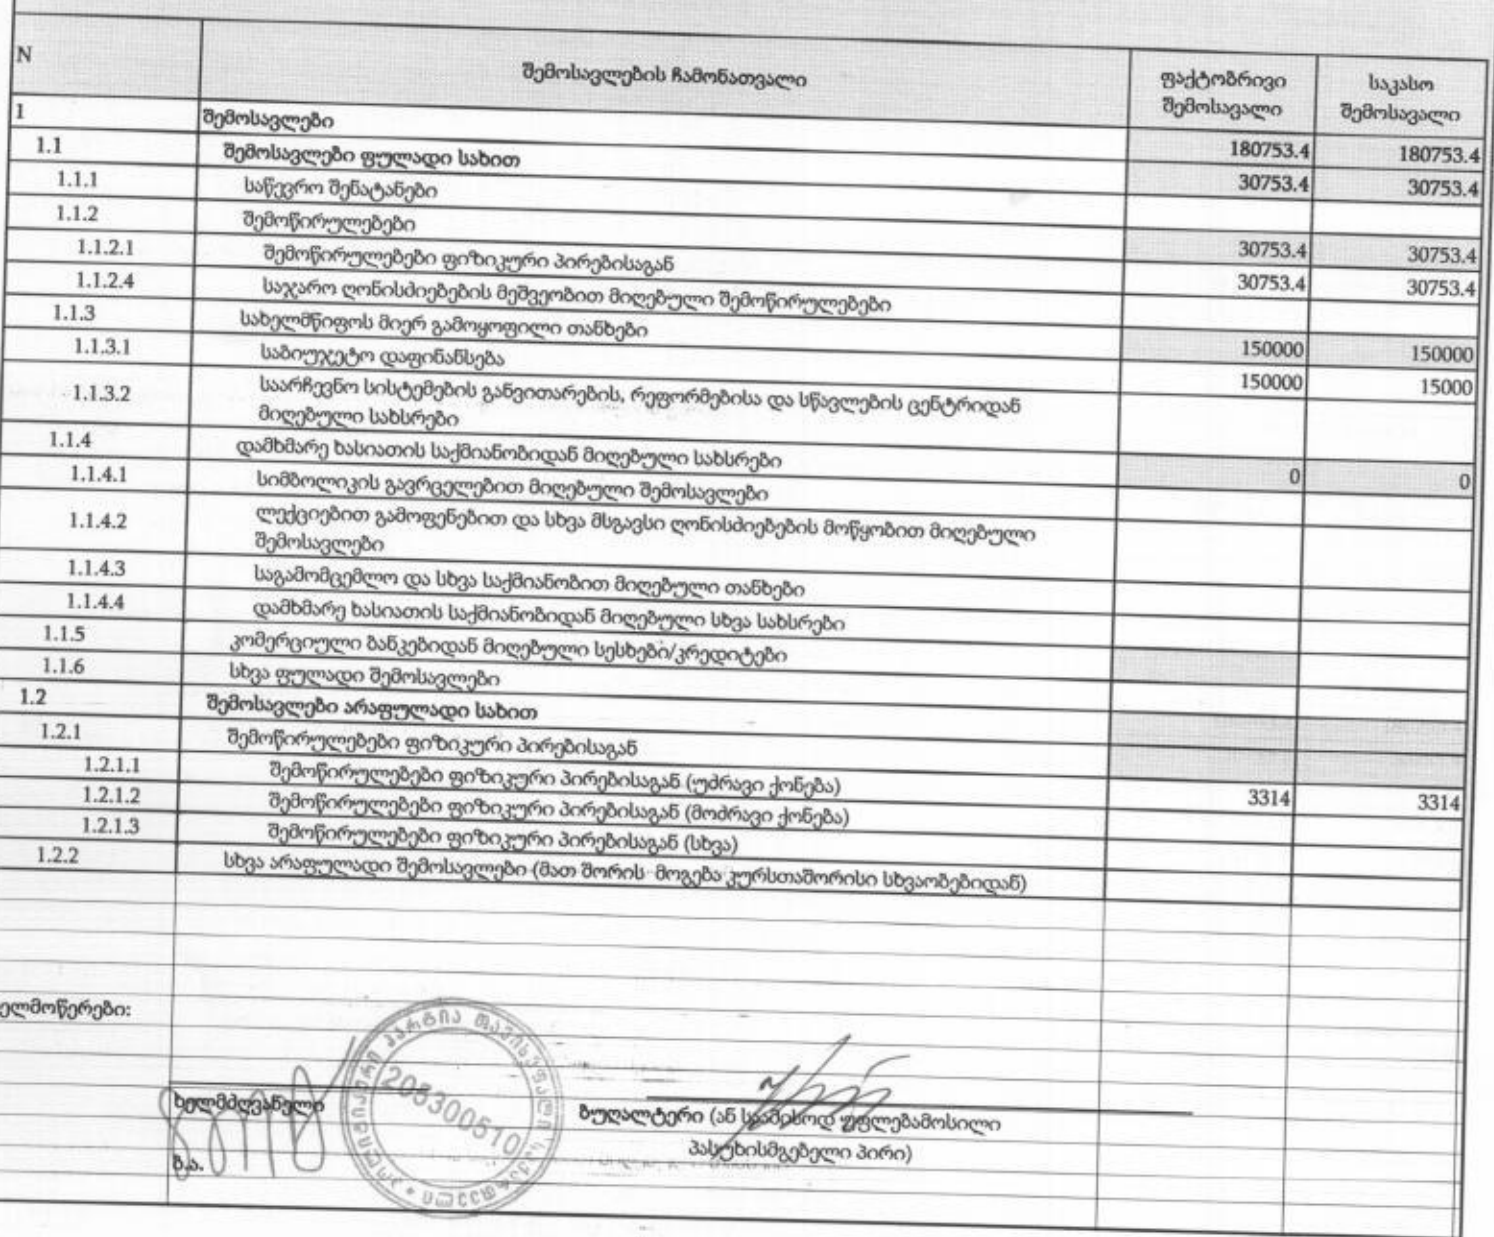 N შემოსავლების ჩამონათვალი ფაქტობრივი შემოსავალი საკასო შემოსავალი
1 შემოსავლები 180753.4 180753.4
1.1 შემოსავლები ფულადი სახით 30753.4 30753.4
1.1.1 საწევრო შენატანები
1.1.2 შემოწირულებები 30753.4 30753.4
1.1.2.1 შემოწირულებები ფიზიკური პირებისაგან 30753.4 30753.4
1.1.2.4 საჯარო ღონისძიებების მეშვეობით მიღებული შემოწირულებები
1.1.3 სახელმწიფოს მიერ გამოყოფილი თანხები 150000 150000
1.1.3.1 საბიუჯეტო დაფინანსება 150000 15000
1.1.3.2 საარჩევნო სისტემების განვითარების, რეფორმებისა და სწავლების ცენტრიდან
მიღებული სახსრები
1.1.4 დამხმარე ხასიათის საქმიანობიდან მიღებული სახსრები 0 0
1.1.4.1 სიმბოლიკის გავრცელებით მიღებული შემოსავლები
1.1.4.2 ლექციებით გამოფენებით და სხვა მსგავსი ღონისძიებების მოწყობით მიღებული
შემოსავლები
1.1.4.3 საგამომცემლო და სხვა საქმიანობით მიღებული თანხები
1.1.4.4 დამხმარე ხასიათის საქმიანობიდან მიღებული სხვა სახსრები
1.1.5 კომერციული ბანკებიდან მიღებული სესხები/კრედიტები
1.1.6 სხვა ფულადი შემოსავლები
1.2 შემოსავლები არაფულადი სახით
1.2.1 შემოწირულებები ფიზიკური პირებისაგან
1.2.1.1 შემოწირულებები ფიზიკური პირებისაგან (უძრავი ქონება) 3314 3314
1.2.1.2 შემოწირულებები ფიზიკური პირებისაგან (მოძრავი ქონება)
1.2.1.3 შემოწირულებები ფიზიკური პირებისაგან (სხვა)
1.2.2 სხვა არაფულადი შემოსავლები (მათ შორის მოგება კურსთაშორისი სხვაობებიდან)
ელმოწერები:
ხელმძღვანელი
ბუღალტერი (ან საამისოდ უფლებამოსილი
პასუხისმგებელი პირი)
ბ.ა.
პოლიტიკური პარტია თავისუფალი საქართველო
205300510